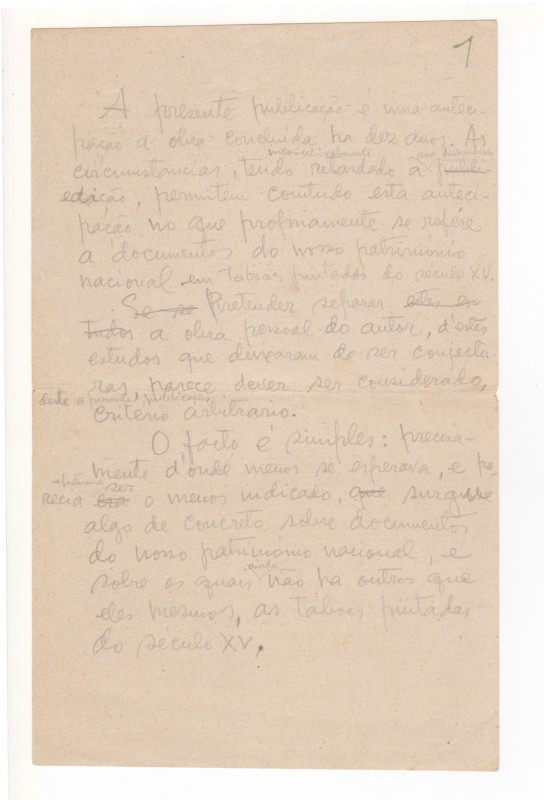 1
A presente publicação é uma anteci-
pação á obra concluida ha dez anos. As
circumstancias, tendo inconcebivelmente retardado a sua publi-
edição, permitem contudo esta anteci-
pação, no que propriamente se refére
a documentos do nosso património
nacional em táboas pintadas do seculo XV.
Se se Pretender separar estes es-
tudos a obra pessoal do autor, d'estes
estudos que deixaram de ser conjectu-
ras, parece dever ser considerado,
deste a presente publicação,
criterio arbitrario.
O facto é simples: precisa-
mente d'onde menos se esperava, e pa-
recia era ser o menos indicado, que surgisse
algo de concreto sobre documentos
do nosso património nacional, e
sobre os quais ainda não ha outros que
eles mesmos, as táboas pintadas
do seculo XV.